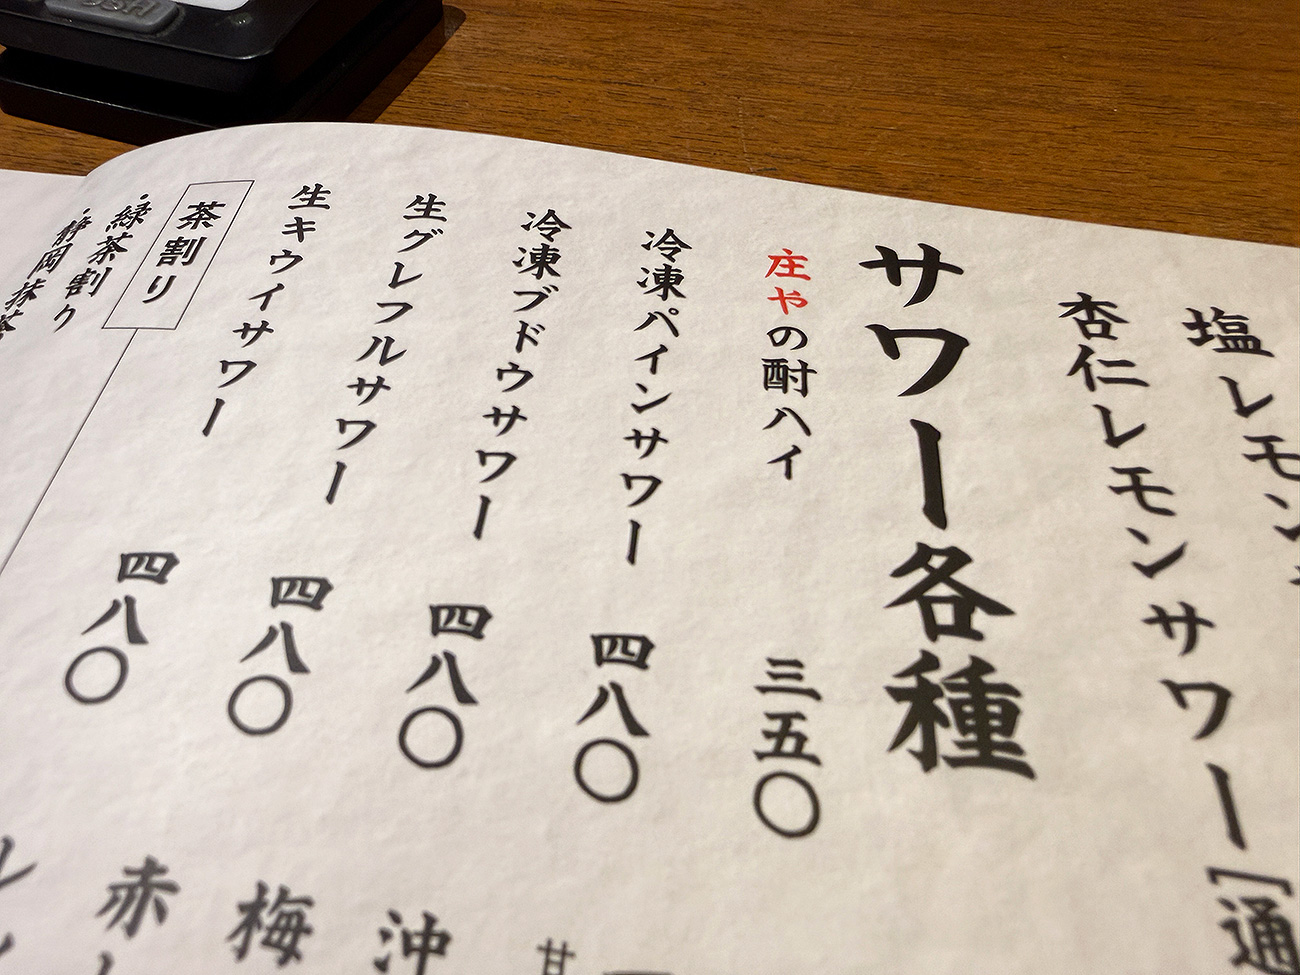 塩レモン
杏仁レモンサワー[通
サワー各種
庄やの酎ハイ 三五〇
冷凍パインサワー 四八〇
冷凍ブドウサワー 四八〇
生グレフルサワー 四八〇
生キウイサワー 四八〇
茶割り
・緑茶割り
・静岡抹茶
甘
沖
梅
赤